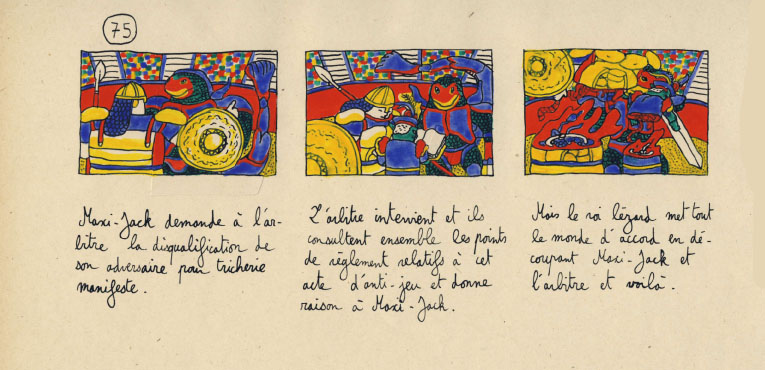 75
Maxi-Jack demande à l'ar-
bitre la disqualification de
son adversaire pour tricherie
manifeste.
L'arbitre intervient et ils
consultent ensemble les points
de règlement relatifs à cet
acte d'anti-jeu et donne
raison à Maxi-Jack.
Mais le roi lézard met tout
le monde d'accord en dé-
coupant Maxi-Jack et
l'arbitre et voilà.